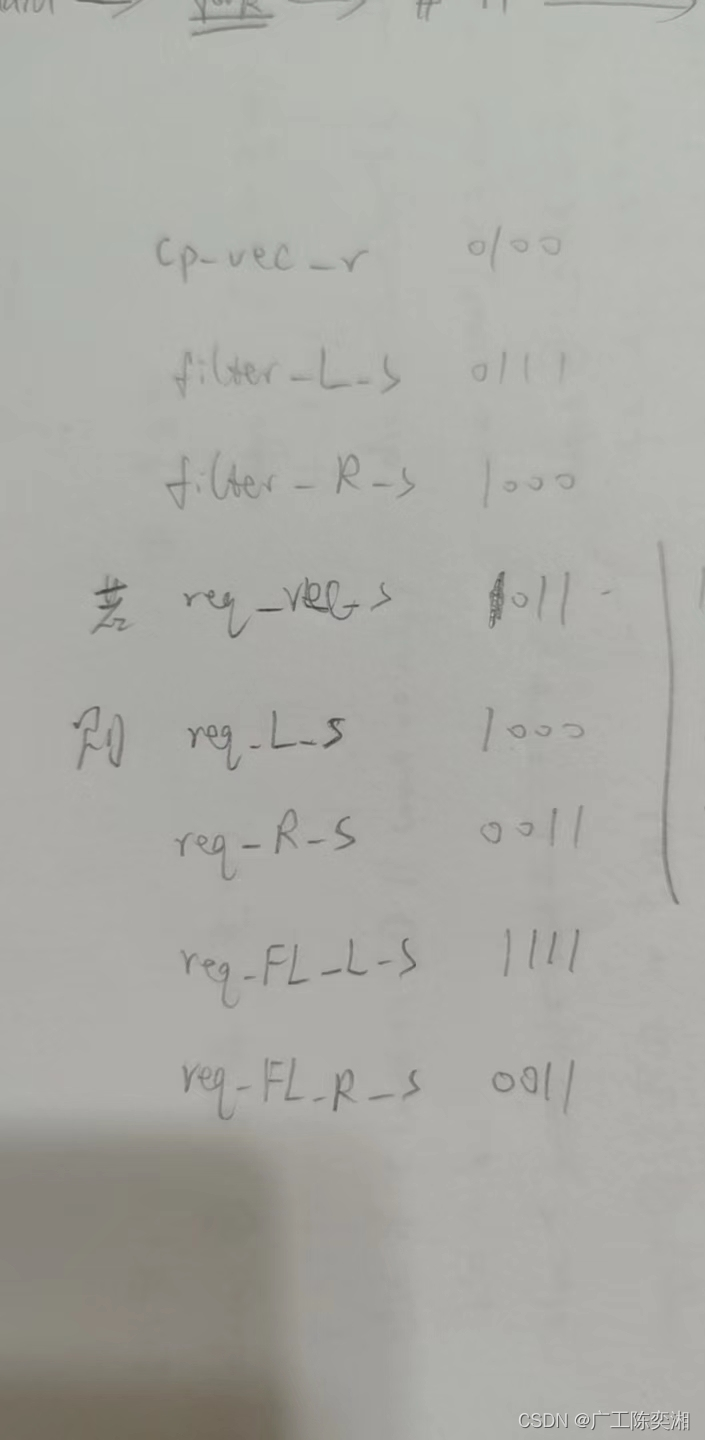 cp_vec_r 0100
filter_L_s 0111
filter_R_s 1000
若 req_vec_s 1011
则 req_L_s 1000
req_R_S 0011
req_FL_L_S 1111
req_FL_R_s 0011
CSDN @广工陈奕湘